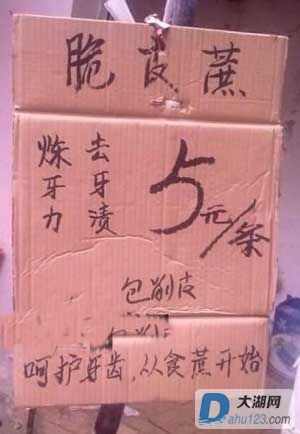 脆皮蔗
去牙渍
炼牙力
5元/条
包削皮
呵护牙齿,从食蔗开始
大湖网
dahu123.com